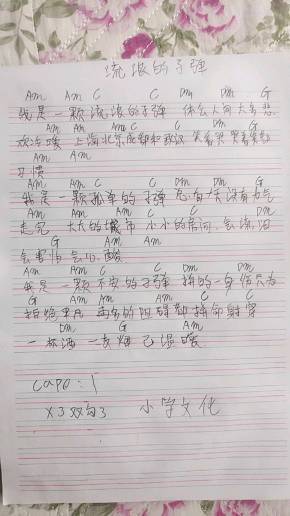 流浪的子弹
Am Am C C Dm Dm G
我是一颗流浪的子弹 体会人间大喜悲
Am Am Am C C Dm Dm G
欢冷暖 上海北京成都和武汉 笑着哭 哭着笑
Am Am
习惯
Am Am C C Dm Dm
我是一颗孤单的子弹 总有天没有勇气
G Am Am C C Dm Dm
走完 大大的城市 小小的房间 会流泪
G Am Am
会害怕 会心酸
Am Am C C Dm Dm
我是一颗不安的子弹 掉的一身伤只为
G Am Am C C
拒绝平凡 再多的阻碍都拼命射穿
Dm G Am
一杯酒 一支烟 已温暖
Capo:1
小学文化